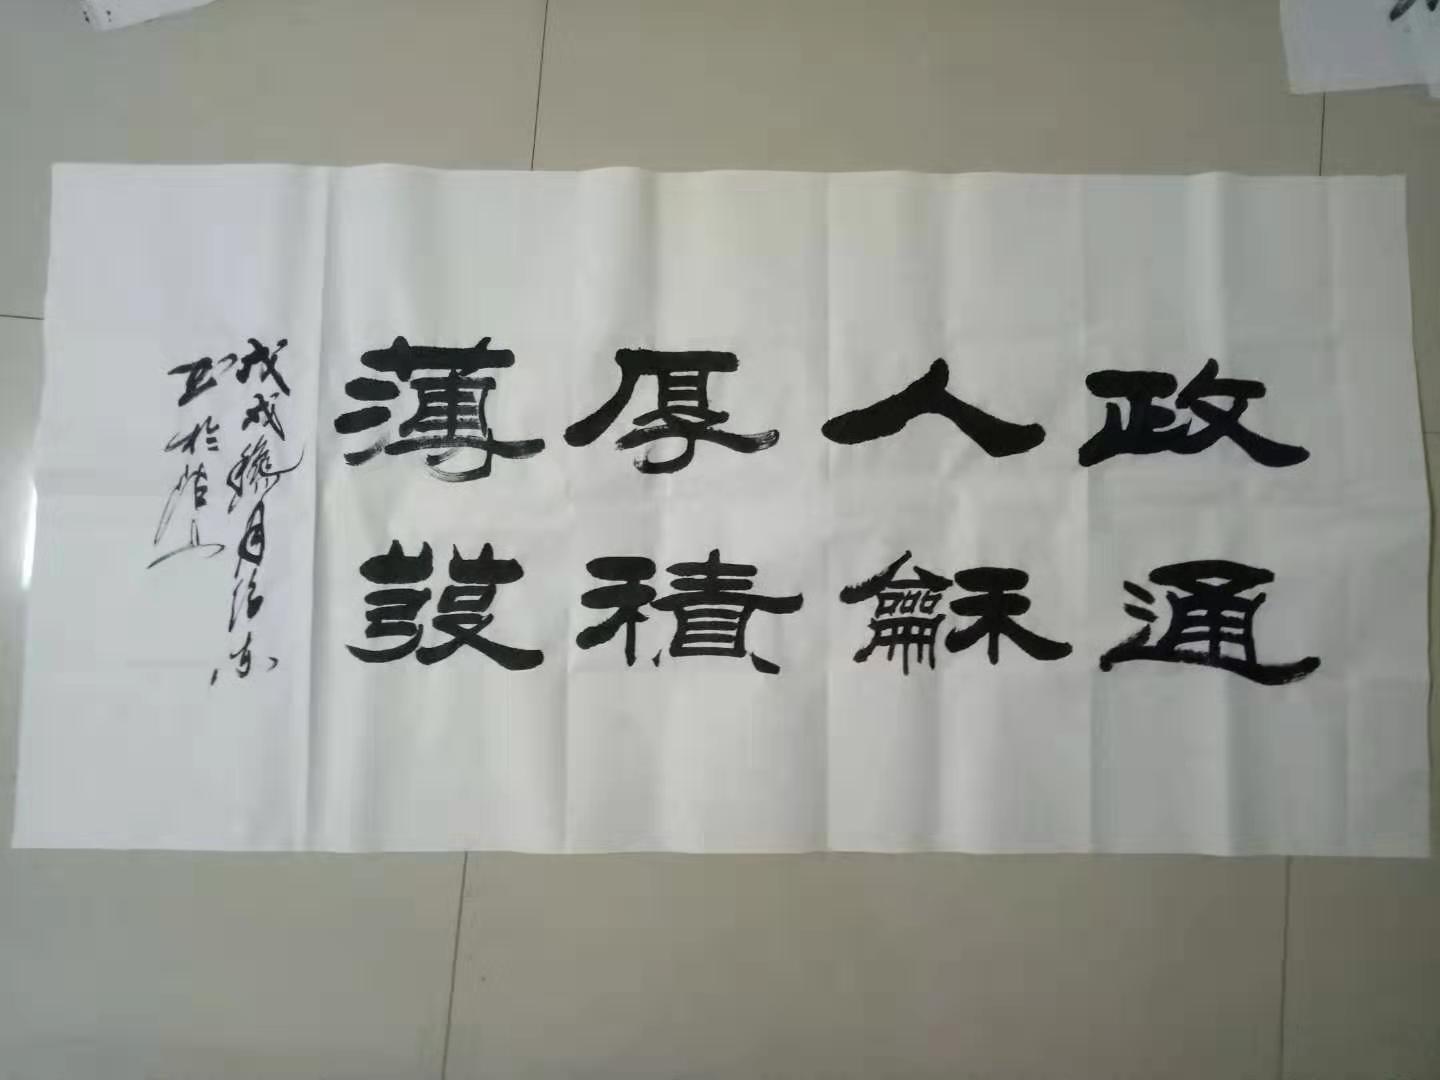 政通
人龢
厚積
薄發
戊戌穐月
於
山